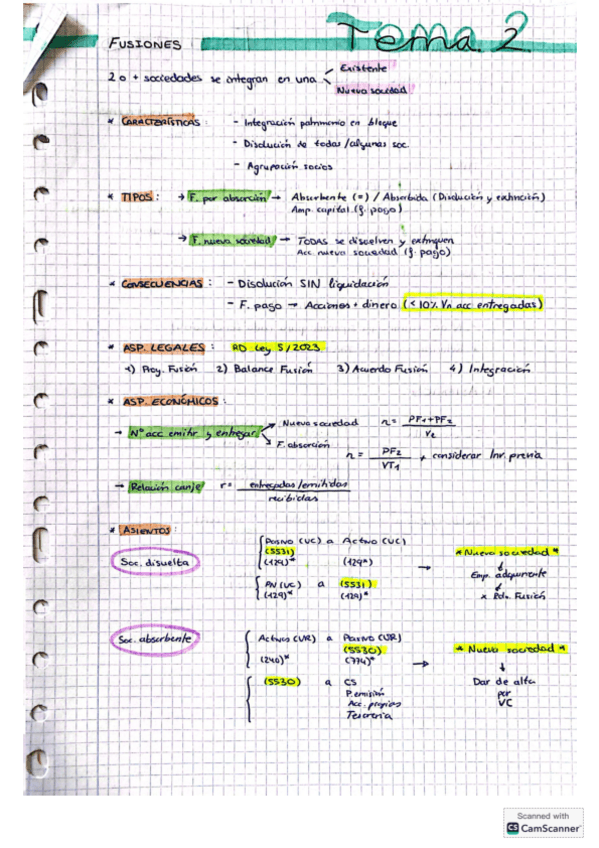 Tema 2
FUSIONES
2 o + sociedades se integran en una
Existente
Nueva sociedad
* CARACTERÍSTICAS:
- Integración patrimonio en bloque
- Disolución de todas/algunas soc.
- Agrupación socios
* TIPOS: → F. por absorción → Absorbente (=) / Absorbida (Disolución y extinción)
Amp. capital (f. pago)
→ F. nueva sociedad → TODAS se disuelven y extinguen
Acc nueva sociedad (f. pago)
* CONSECUENCIAS: - Disolución SIN liquidación
- F. pago → Acciones + dinero (< 10% Vn acc entregadas)
* ASP. LEGALES: RD Ley 5/2023
1) Proy. Fusión 2) Balance Fusión 3) Acuerdo Fusión 4) Integración
* ASP. ECONÓMICOS:
→ Nº acc emitir y entregar
Nueva sociedad n = PF1+PF2 / Ve
F. absorción n = PF2 / VT1 + considerar Inv. previa
→ Relación canje r = entregadas/emitidas / recibidas
* ASIENTOS:
Soc. disuelta
Pasivo (VC) a Activo (VC)
(5531)
(129)* (129*)
→
PN (VC) a (5531)
(129)* (129)*
* Nueva sociedad *
↓
Emp. adquirente
↓
x Rdo. Fusión
Soc. absorbente
Activos (VR) a Pasivo (VR)
(5530)
(240)* (774)*
→
(5530) a CS
P. emisión
Acc. propias
Tesorería
* Nueva sociedad *
↓
Dar de alta
por
VC
Scanned with
CS CamScanner